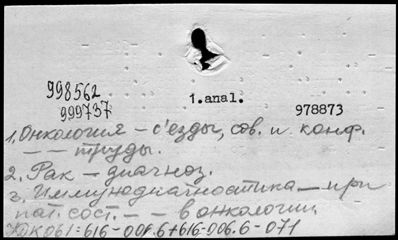 998562
999737
1.anal.
978873
1, Онкология – с'езды, сов. и конф.
– – труды.
2. Рак – диагноз.
3. Иммунодиагностика – при
пат. сост. – – в онкологии.
УДК 061:616-006.6+616-006.6-071